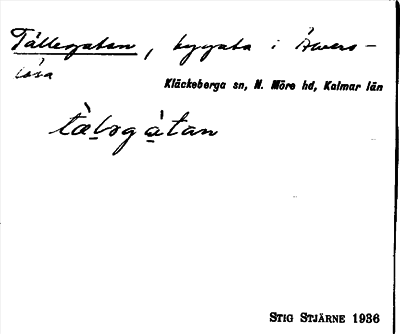 Tällegatan, byggata i Åvers-
lösa
Kläckeberga sn, N. Möre hd, Kalmar län
STIG STJÄRNE 1936